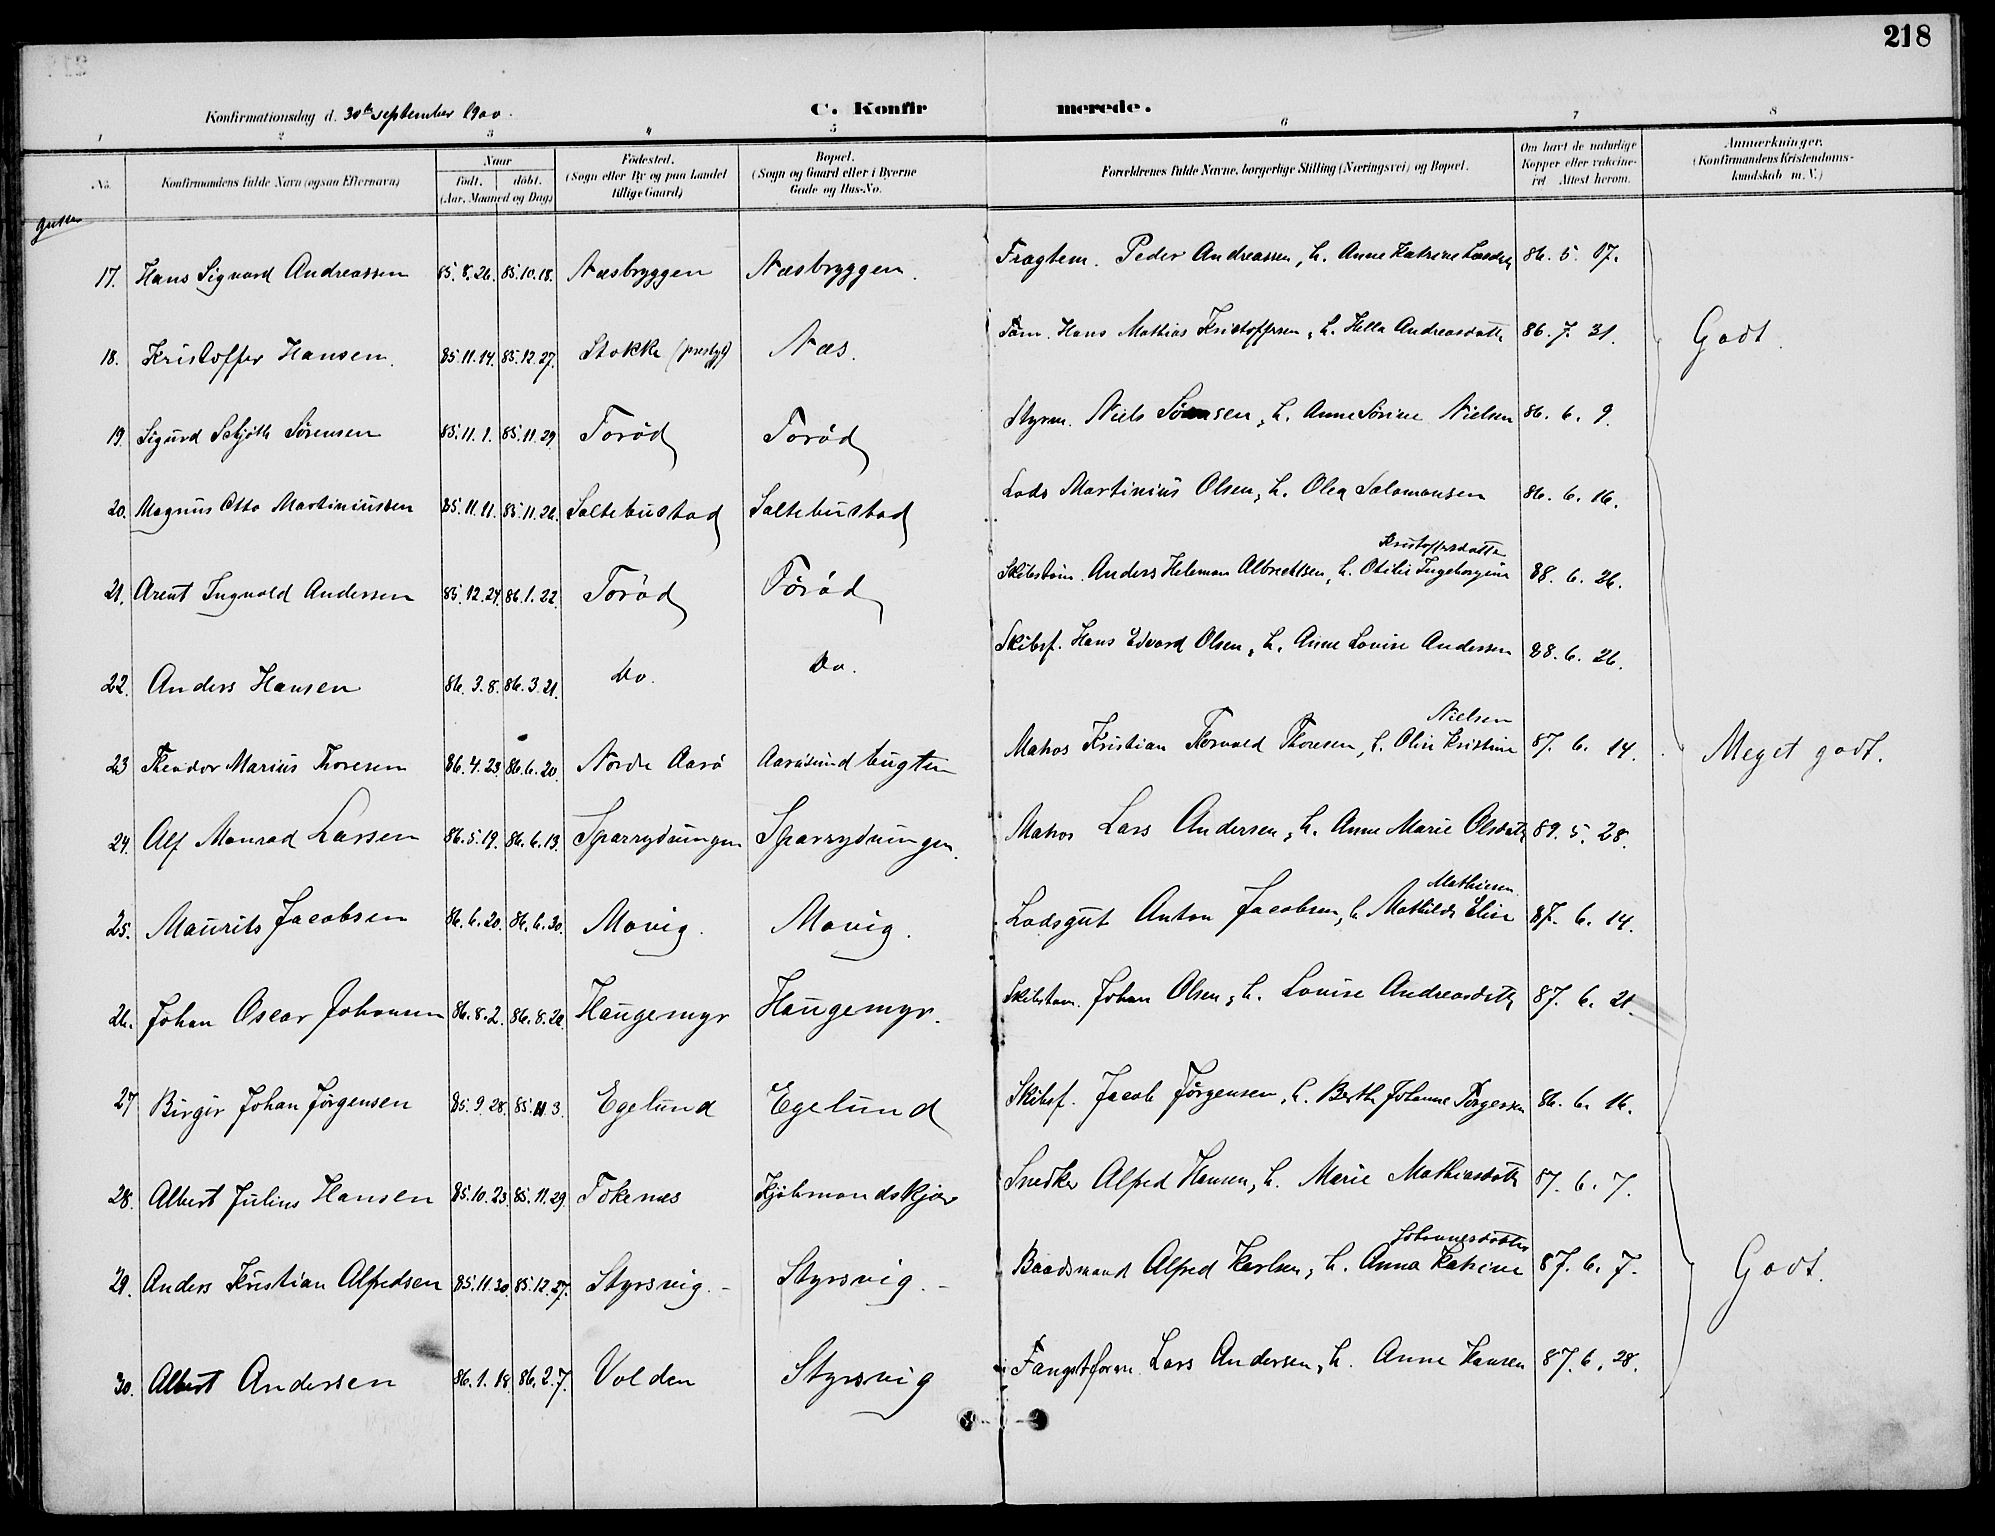 218
Konfirmationsdag d. 30te september 1900.
C. Konfirmerede.
1 2 3 4 5 6 7 8
No. Konfirmandens fulde Navn (ogsaa Efternavn)
Naar
født. døbt.
(Aar, Maaned og Dag)
Fødested.
(Sogn eller By og paa Landet
tillige Gaard)
Bopæl.
(Sogn og Gaard eller i Byerne
Gade og Hus-No.
Forældrenes fulde Navne, borgerlige Stilling (Næringsvei) og Bopæl.
Om havt de naturlige
Kopper eller vakcine-
ret Attest herom.
Anmærkninger.
(Konfirmandens Kristendoms-
kundskab m. V.)
Gutter
17. Hans Sigvard Andreassen 85.8.26. 85.10.18. Næsbryggen Næsbryggen. Fragtem. Peder Andreassen, h. Anne Katrine 86. 5. 17.
18. Kristoffer Hansen. 85.11.14. 85.12.27. Stokke (prestgj) Næs. Tøm. Hans Mathias Kristoffersen, h. Hella Andreasdatter 86. 7. 31. Godt.
19. Sigurd Schjøth Sørensen 85.11.1. 85.11.29. Torød Torød Styrm. Niels Sørensen, h. Anne Sørine Nielsen 86. 6. 9.
20. Magnus Otto Martiniussen 85.11.11. 85.11.26. Saltebustad Saltebustad Lods Martinius Olsen, h. Olea Salomonsen 86. 6. 16.
Kristoffersdatter
21. Arent Ingvald Andersen 85.12.24. 86.1.22. Torød Torød Skibstøm. Anders Heleman Albrechtsen, h. Otilie Ingeborgine 88. 6. 26.
22. Anders Hansen 86.3.8. 86.3.21. Do. Do. Skibsf. Hans Edvard Olsen, h. Anne Lovise Andersen 88. 6. 26.
Nielsen
23 Theodor Marius Thoresen 86.4.23. 86.6.20. Nordre Aarø Aarøsundbugten Matros Kristian Torvald Thoresen, h. Oline Kristine 87. 6. 14. Meget godt.
24. Alf Monrad Larsen 86.5.19. 86.6.13. Sparrydningen Sparrydningen. Matros Lars Andersen, h. Anne Marie Olsdatter 89. 5. 28.
Mathisen
25. Maurits Jacobsen 86.6.20. 86.6.30. Movig. Movig. Lodsgut Anton Jacobsen, h. Mathilde Elise 87. 6. 14.
26. Johan Oscar Johansen 86.8.2. 86.8.26. Haugemyr Haugemyr. Skibstøm. Johan Olsen, h. Lovise Andreasdatter 87. 6. 21.
27 Birger Johan Jørgensen 85.9.28. 85.11.3. Egelund Egelund Skibsf. Jacob Jørgensen, h. Berthe Johanne Torgersen 86. 6. 16.
28. Albert Julius Hansen 85.10.23. 85.11.29. Tokenæs Kjøbmandskjær Snedker Alfred Hansen, h. Marie Mathiasdatter 87. 6. 7.
Johannesdatter
29. Anders Kristian Alfredsen 85.11.30. 85.12.27. Styrsvig. Styrsvig. Baadsmand Alfred Karlsen, h. Anna Katrine 87. 6. 7. Godt.
30. Albert Andersen 86.1.18. 86.2.7. Volden Styrsvig Fangstform. Lars Andersen, h. Anne Hansen 87. 6. 28.